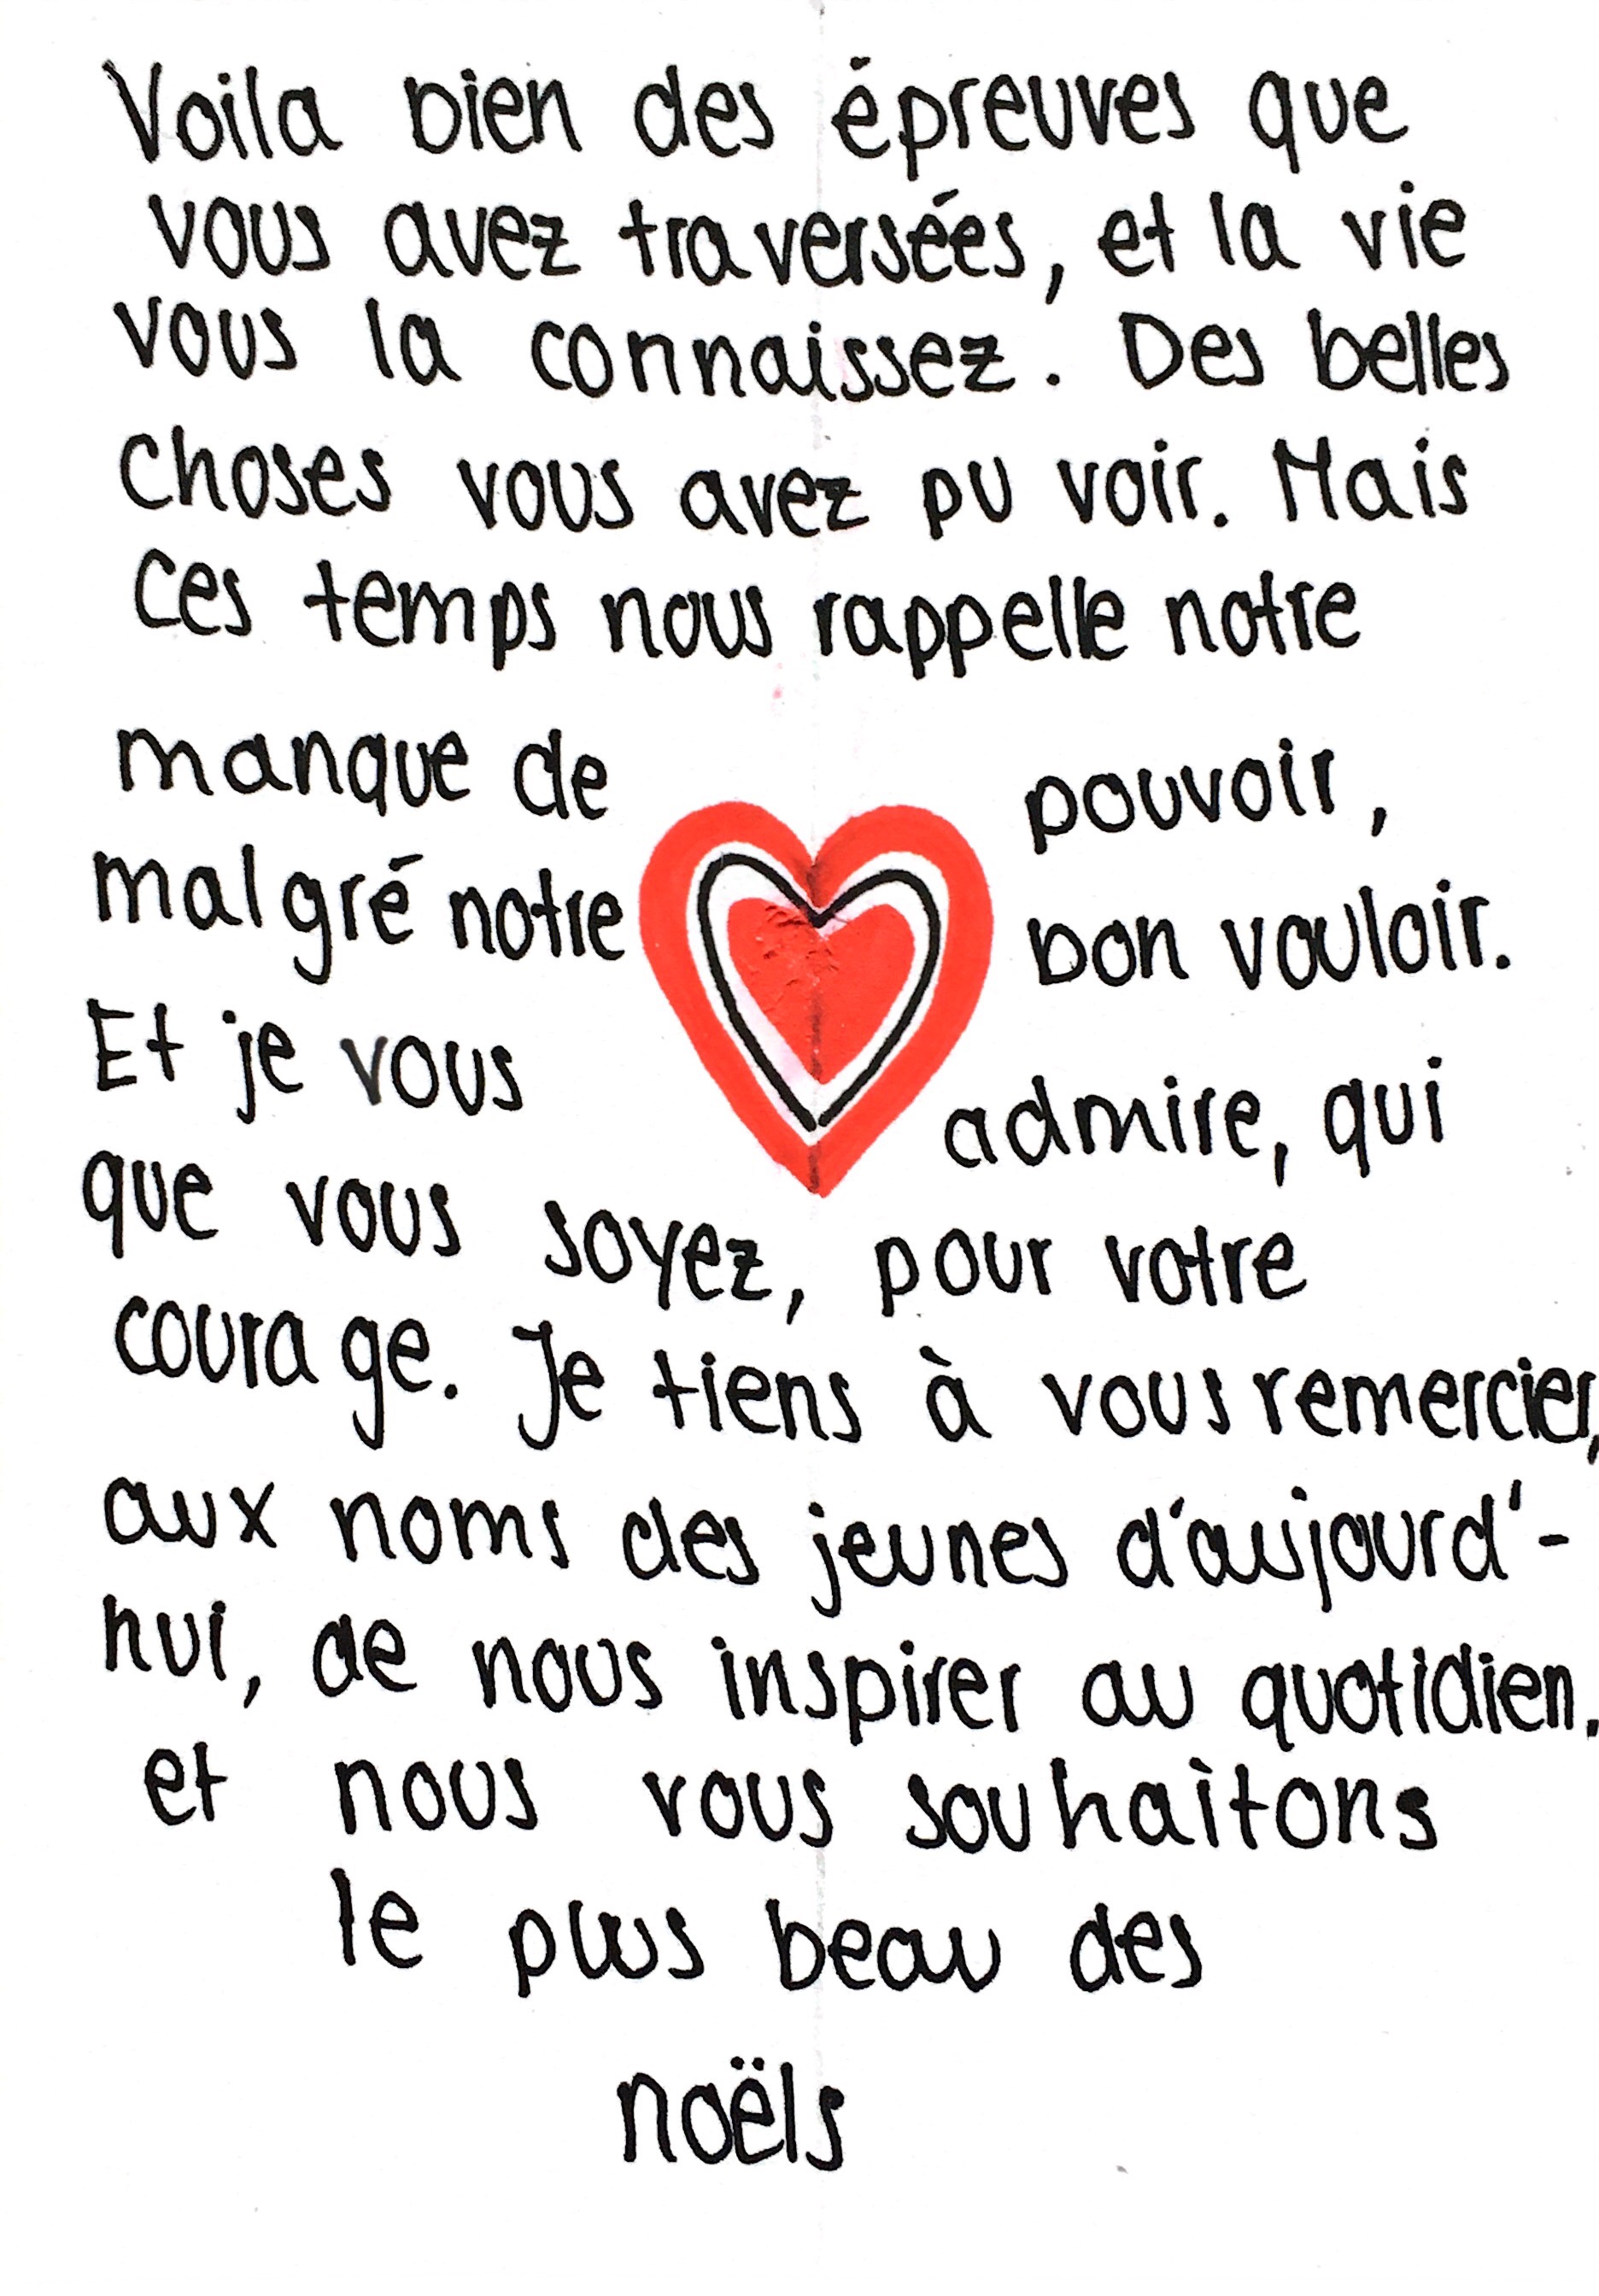 Voila bien des épreuves que
vous avez traversées, et la vie
vous la connaissez. Des belles
choses vous avez pu voir. Mais
ces temps nous rappelle notre
manque de pouvoir,
malgré notre bon vouloir.
Et je vous admire, qui
que vous soyez, pour votre
courage. Je tiens à vous remercier,
aux noms des jeunes d'aujourd'-
hui, de nous inspirer au quotidien.
et nous vous souhaitons
le plus beau des
noëls